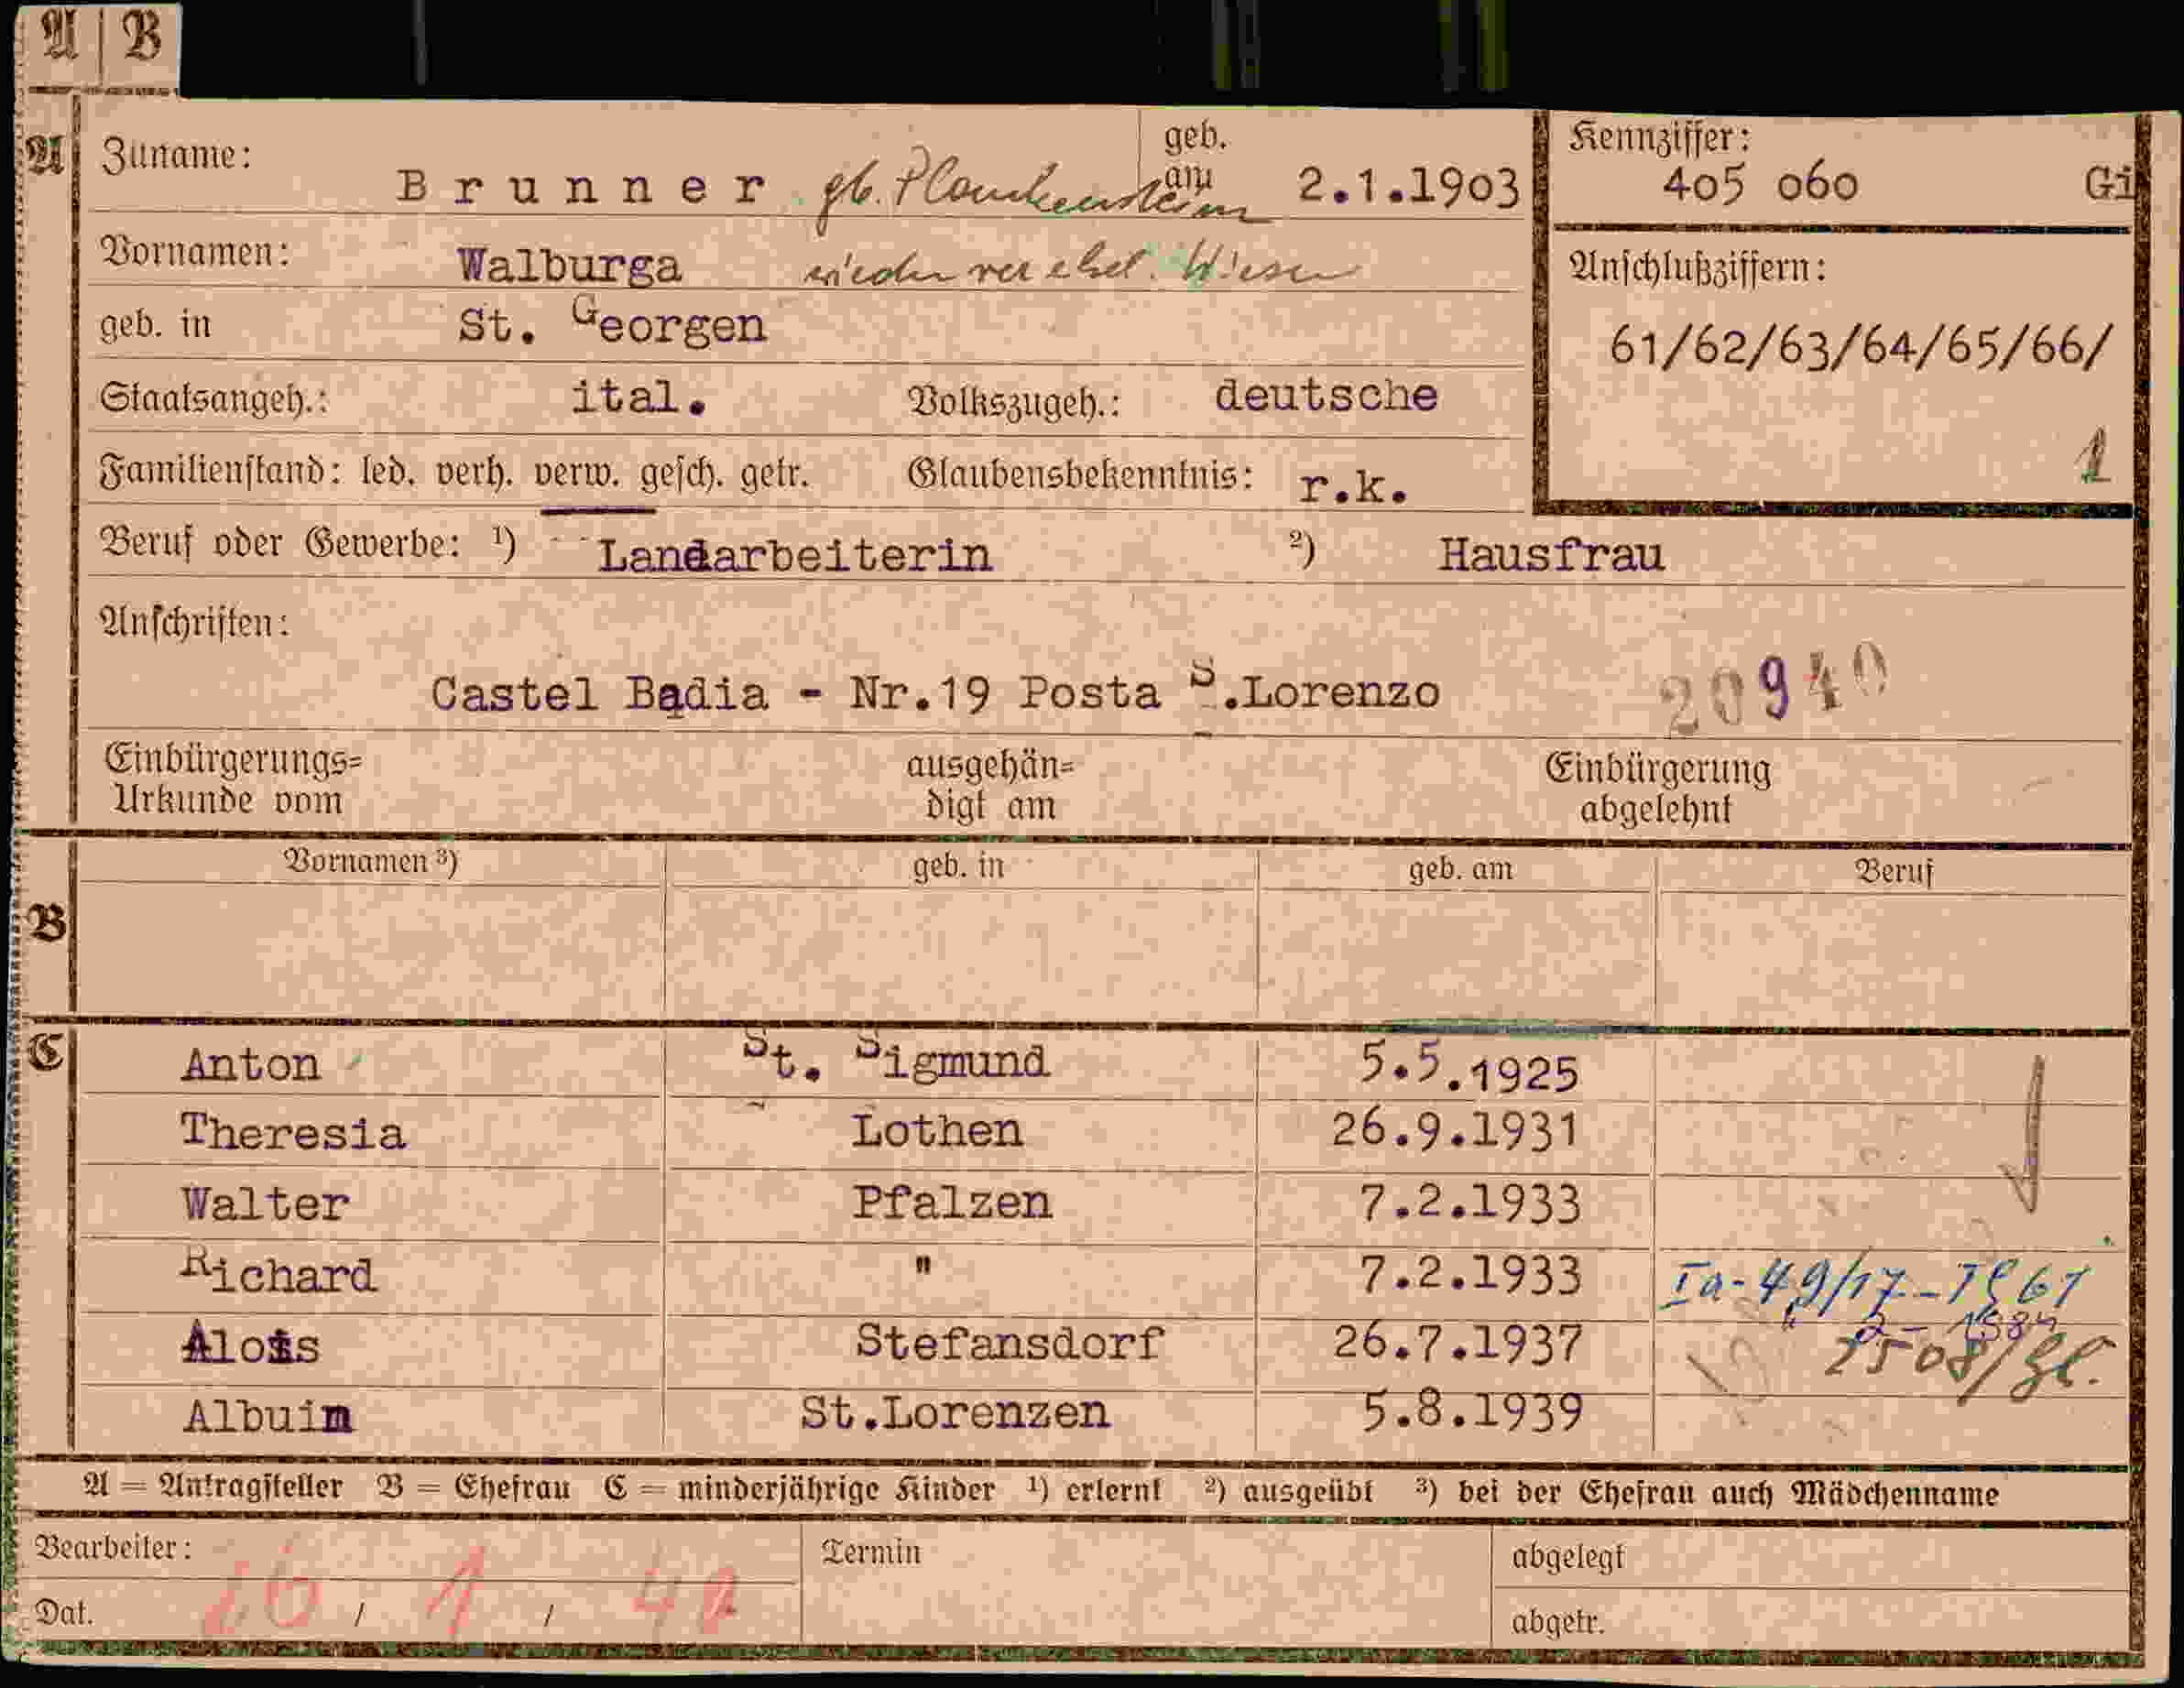 A B
A Zuname: Brunner gb. Plankensteiner geb. am 2.1.1903
Kennziffer: 405 060 Gi
Vornamen: Walburga wieder verehel. Wieser
Anschlußziffern:
geb. in St. Georgen
61/62/63/64/65/66/
Staatsangeh.: ital. Volkszugeh.: deutsche
1
Familienstand: led. verh. verw. gesch. getr. Glaubensbekenntnis: r.k.
Beruf oder Gewerbe: ¹) Landarbeiterin ²) Hausfrau
Anschriften:
Castel Badia - Nr.19 Posta S.Lorenzo 20940
Einbürgerungs= ausgehän= Einbürgerung
Urkunde vom digt am abgelehnt
B Vornamen ³) geb. in geb. am Beruf
C Anton St. Sigmund 5.5.1925
Theresia Lothen 26.9.1931
Walter Pfalzen 7.2.1933
Richard " 7.2.1933 Ia-49/17-
Alois Stefansdorf 26.7.1937 2508/
Albuin St.Lorenzen 5.8.1939
A = Antragsteller B = Ehefrau C = minderjährige Kinder ¹) erlernt ²) ausgeübt ³) bei der Ehefrau auch Mädchenname
Bearbeiter: Termin abgelegt
Dat. 16 / 1 / 42 abgetr.